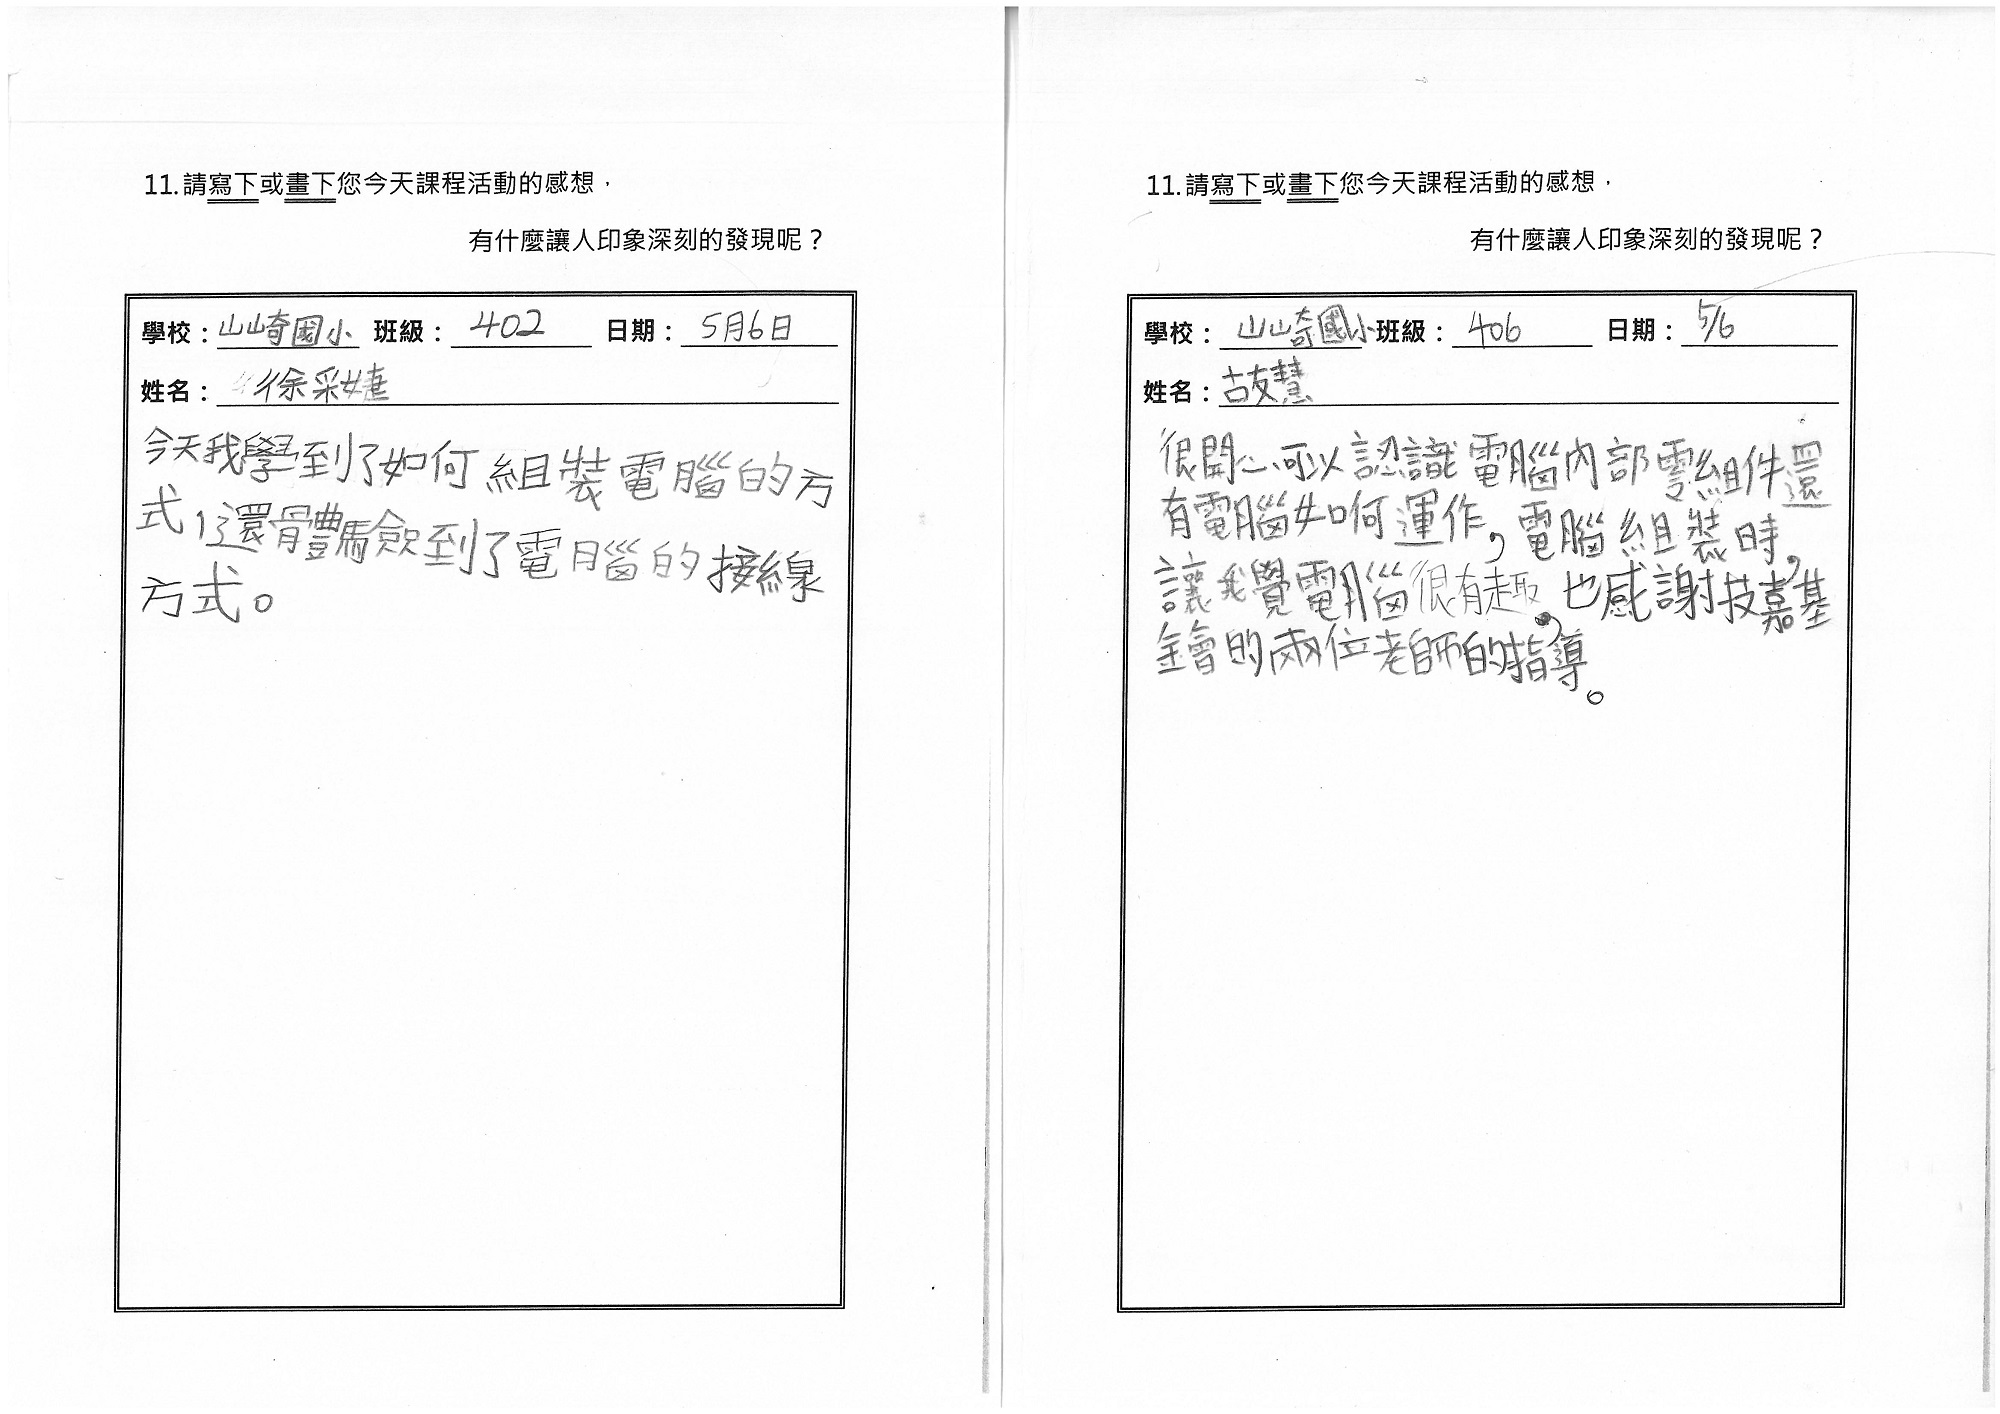 11.請寫下或畫下您今天課程活動的感想，
有什麼讓人印象深刻的發現呢？
學校：山崎國小 班級：402 日期：5月6日
姓名：徐采婕
今天我學到了如何組裝電腦的方
式，還體驗到了電腦的接線
方式。
11.請寫下或畫下您今天課程活動的感想，
有什麼讓人印象深刻的發現呢？
學校：山崎國小 班級：406 日期：5/6
姓名：古友慧
很開心可以認識電腦內部零組件還
有電腦如何運作，電腦組裝時，
讓我覺電腦很有趣，也感謝技嘉基
金會的兩位老師的指導。